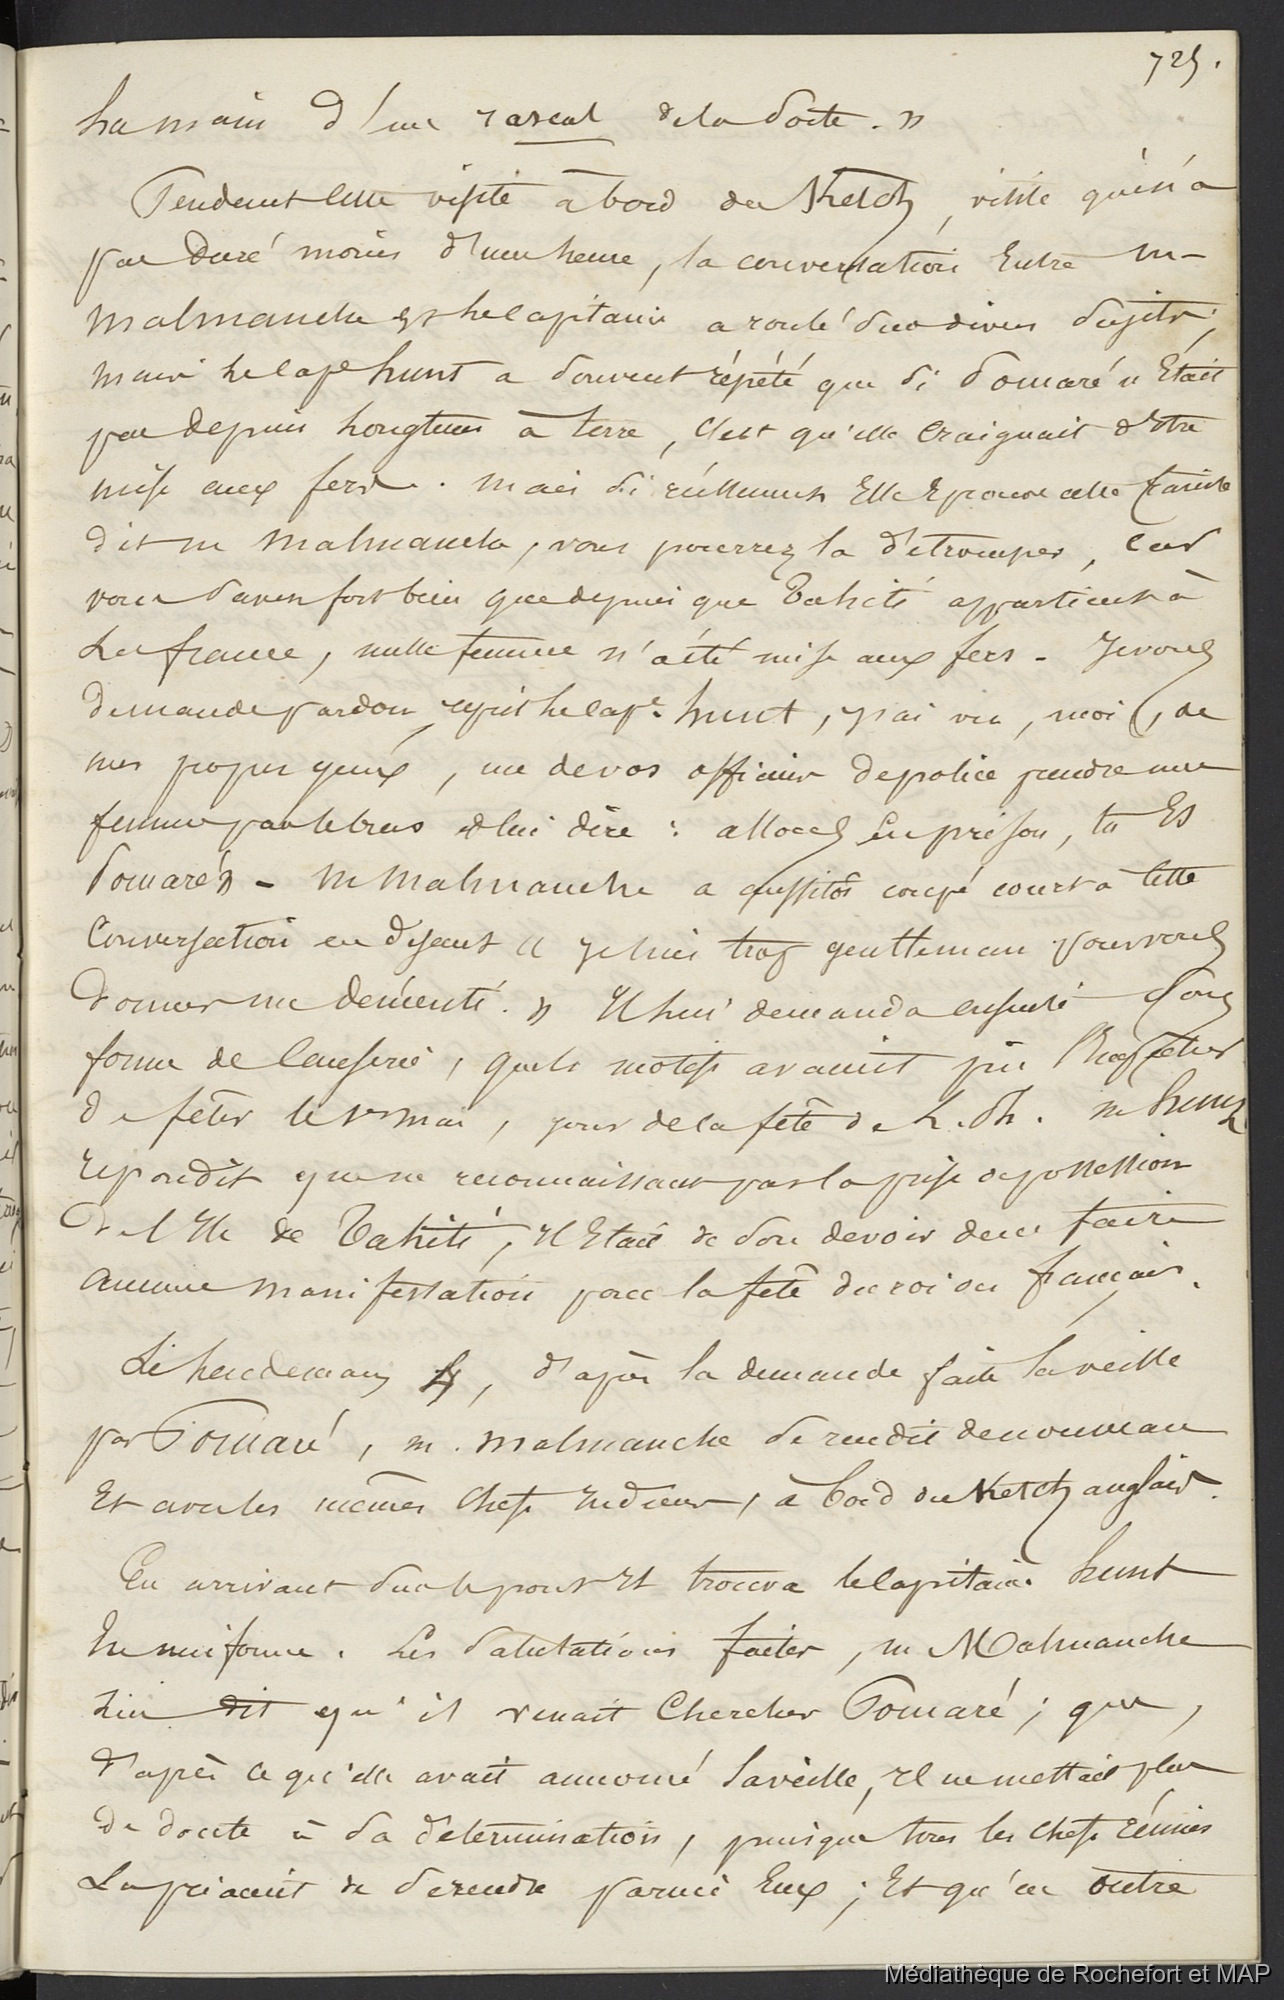 725.
la main d'un rascal de la sorte. »
Pendant cette visite à bord du Ketch, visite qui n'a
pas duré moins d'une heure, la conversation entre M.
Malmanche et le capitaine a roulé sur divers sujets;
mais le cape hunt a souvent répété que si Pomaré n'était
pas depuis longtems à terre, c'est qu'elle craignait d'être
mise aux fers. Mais si réellement Elle Eprouve cette crainte
dit M Malmanche, vous pourrez la détromper, car
vous savez fort bien que depuis que Tahiti appartient à
La france, nulle femme n'a été mise aux fers - Je vous
demande pardon, reprit le cape hunt, j'ai vu, moi, de
mes propres yeux, un de vos officiers de police prendre une
femme par le bras et lui dire : allons En prison, tu Es
Pomaré » - M Malmanche a aussitôt coupé court à cette
Conversation en disant « je suis trop gentleman pour vous
donner un démenti. » Il lui demanda ensuite sous
forme de causerie, quels motifs avaient pu l'empêcher
de fêter le 1er mai, jour de la fête de L. Ph. M hunt
répondit que ne reconnaissant pas la prise de possession
de l'Ile de Tahiti, il Etait de son devoir de ne faire
aucune manifestation pour la fête du roi des français.
Le lendemain 4, d'après la demande faite la veille
par Pomaré, M. Malmanche se rendit de nouveau
Et avec les mêmes chefs Indiens, à bord du Ketch anglais.
En arrivant sur le pont il trouva le capitaine hunt
En uniforme. Les salutations faites, M Malmanche
lui dit qu'il venait Chercher Pomaré; que,
d'après ce qu'elle avait annoncé la veille, il ne mettait plus
de doute à sa détermination, puisque tous les chefs réunis
La priaient de se rendre parmi Eux; Et qu'en outre
Médiathèque de Rochefort et MAP